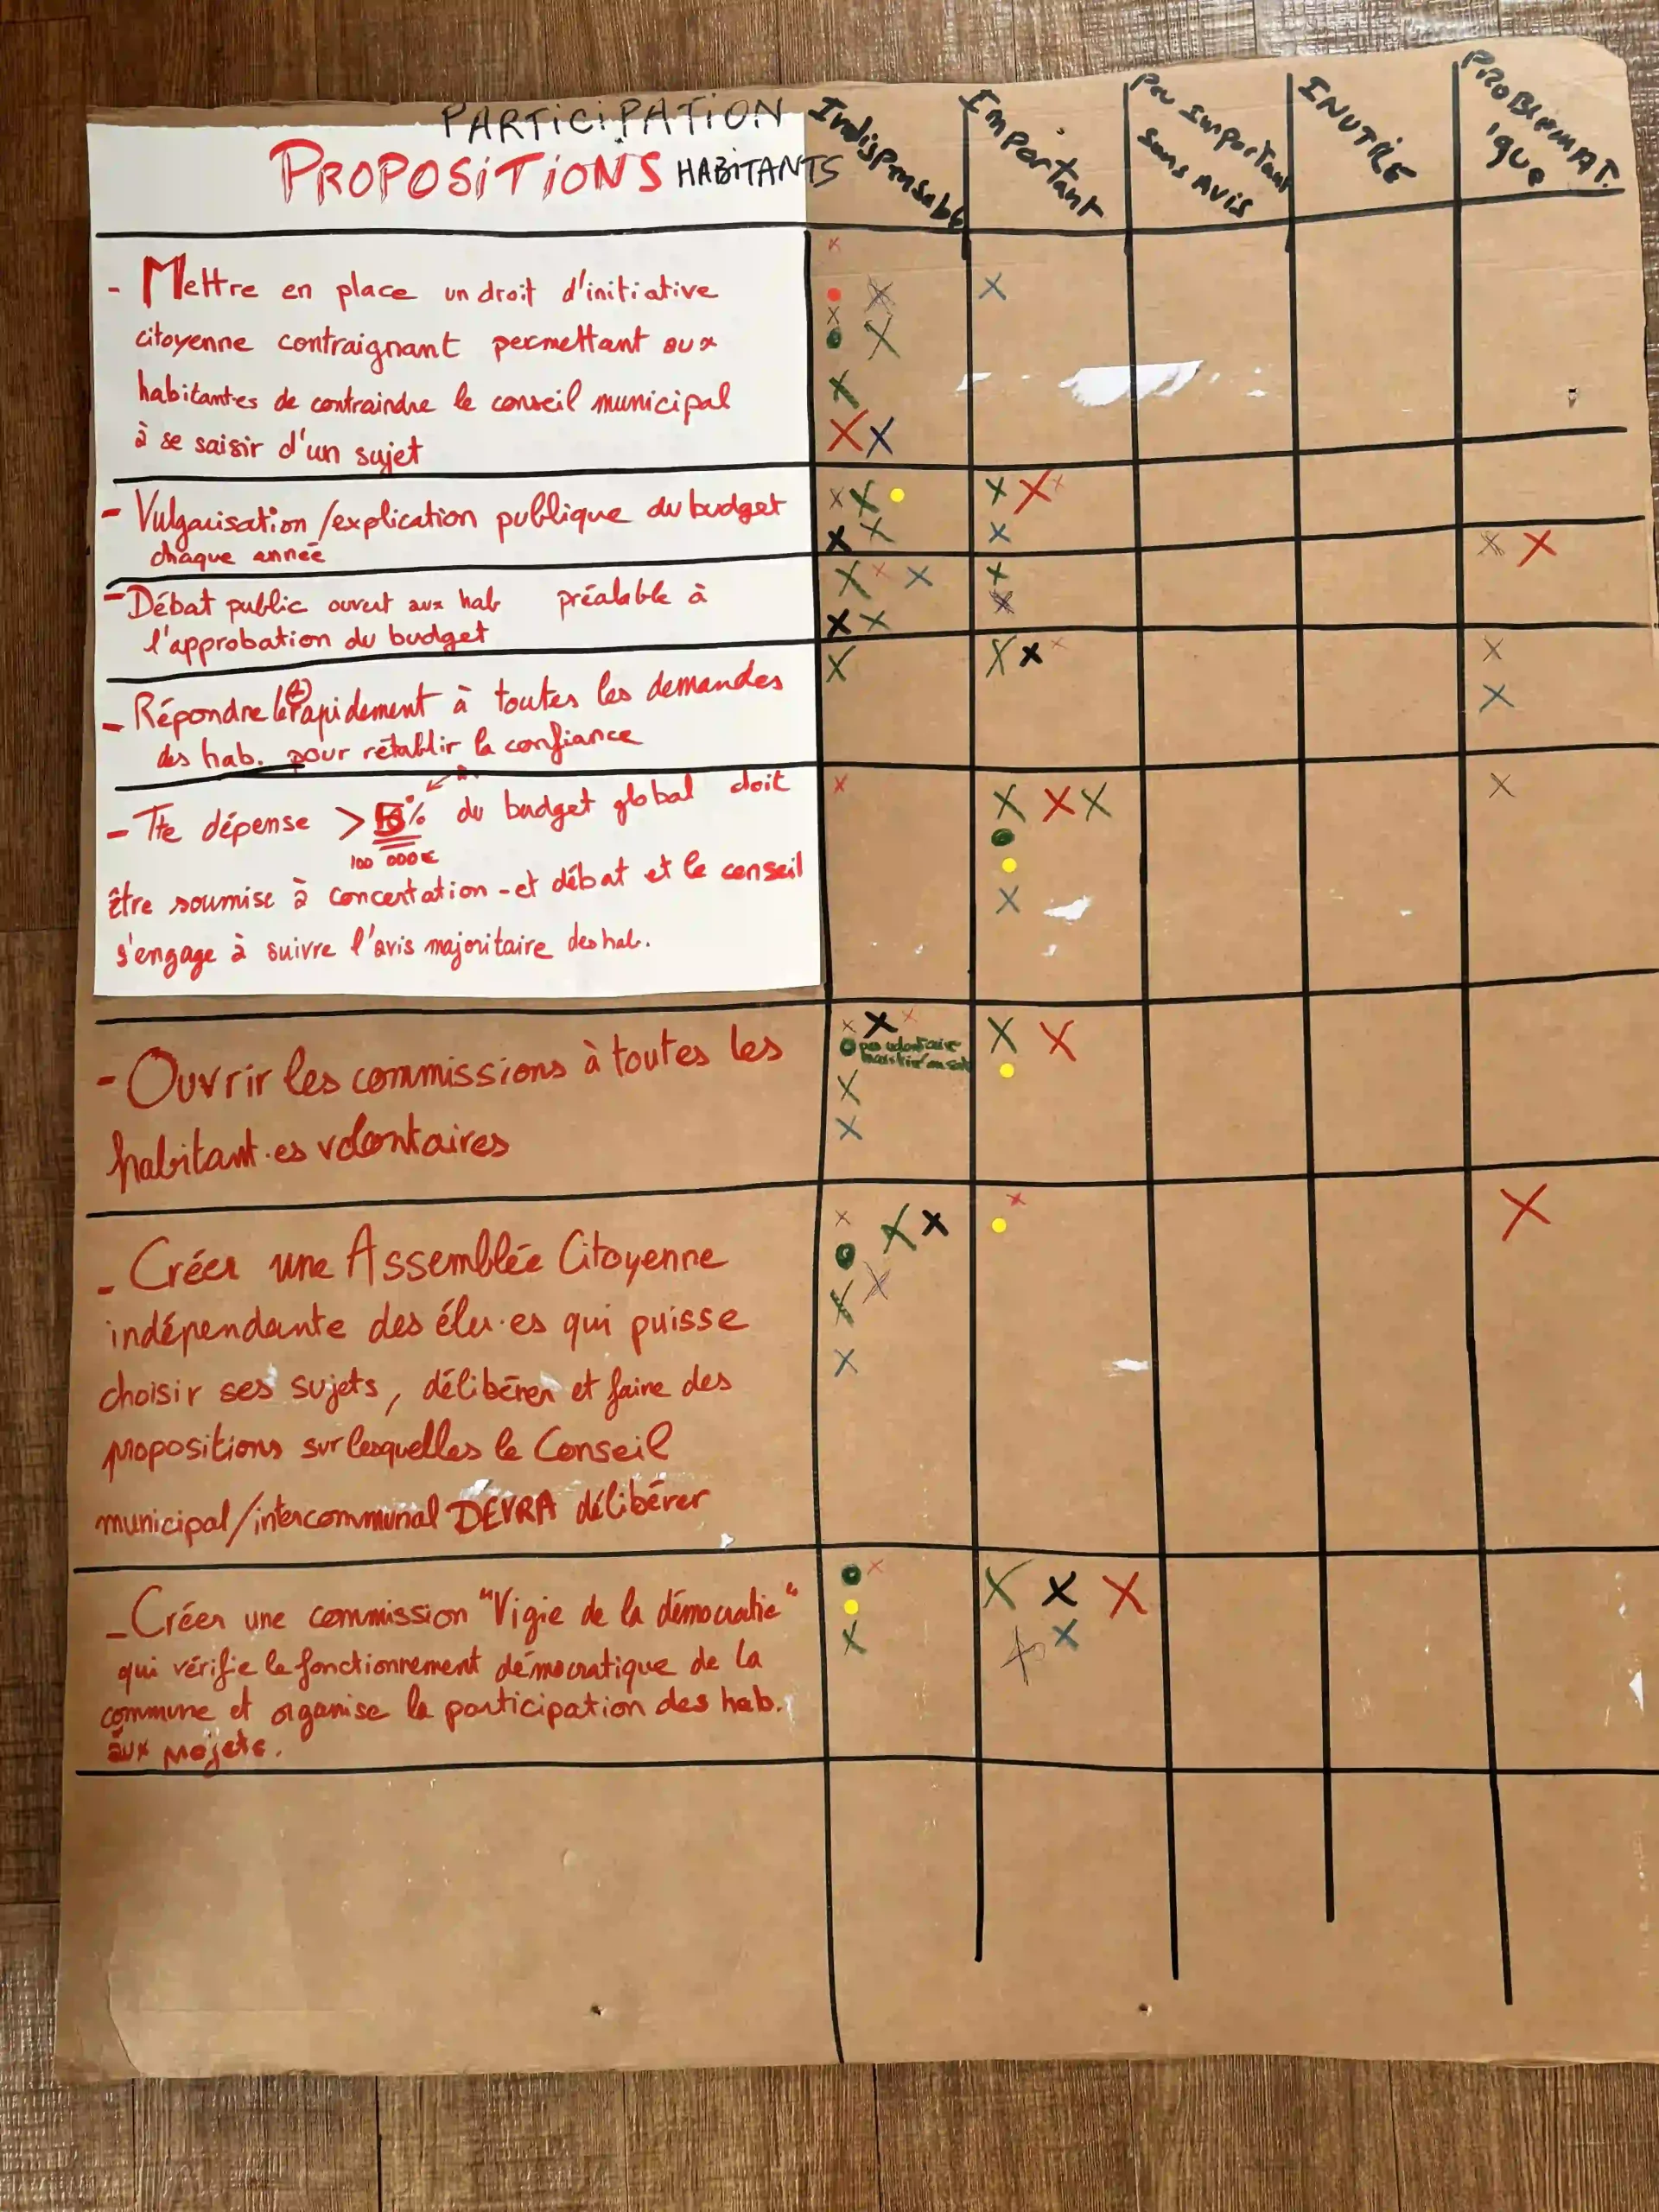 PARTICIPATION
PROPOSITIONS HABITANTS
Indispensable
Important
Peu important
sans avis
INUTILE
PROBLEMAT.
ique
- Mettre en place un droit d'initiative
citoyenne contraignant permettant aux
habitant·es de contraindre le conseil municipal
à se saisir d'un sujet
- Vulgarisation/explication publique du budget
chaque année
- Débat public ouvert aux hab préalable à
l'approbation du budget
- Répondre (+) rapidement à toutes les demandes
des hab. pour rétablir la confiance
- Tte dépense > % du budget global doit
100 000€
être soumise à concertation - et débat et le conseil
s'engage à suivre l'avis majoritaire des hab.
- Ouvrir les commissions à toutes les
habitant·es volontaires
- Créer une Assemblée Citoyenne
indépendante des élu·es qui puisse
choisir ses sujets, délibérer et faire des
propositions sur lesquelles le Conseil
municipal/intercommunal DEVRA délibérer
- Créer une commission "Vigie de la démocratie"
qui vérifie le fonctionnement démocratique de la
commune et organise la participation des hab.
aux projets.